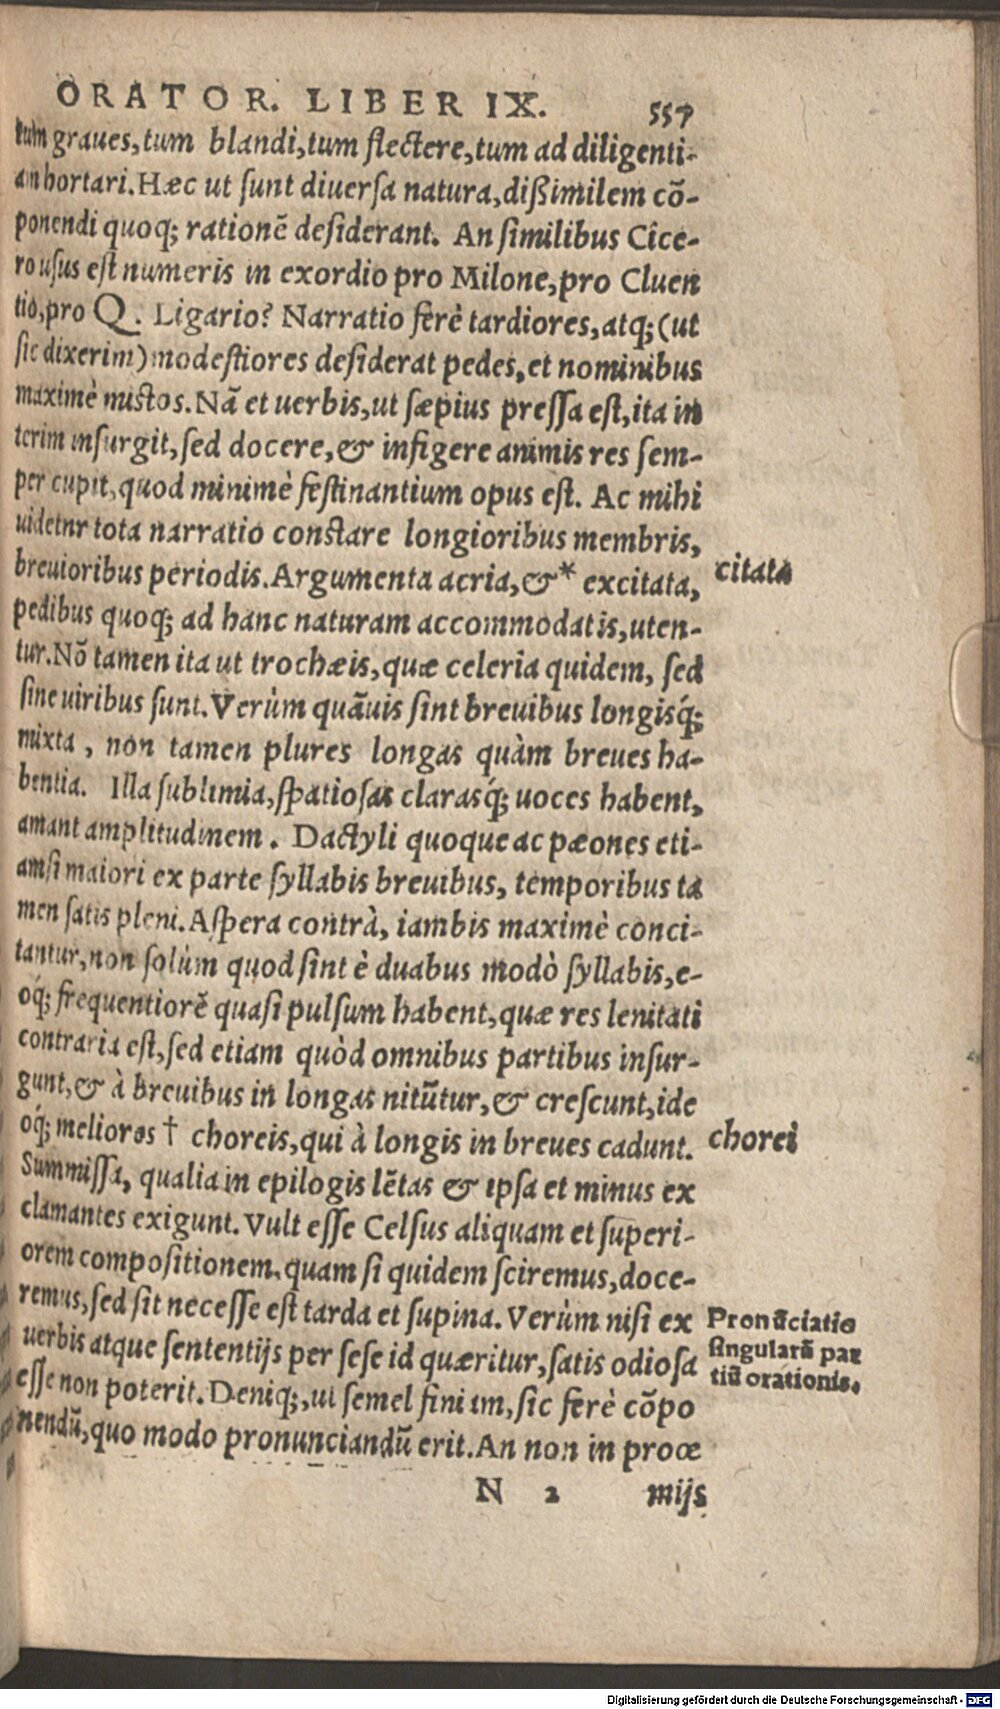 ORATOR. LIBER IX. 557
tum graues, tum blandi, tum flectere, tum ad diligenti-
am hortari. Hæc ut sunt diuersa natura, dißimilem cõ-
ponendi quoq; rationẽ desiderant. An similibus Cice-
ro usus est numeris in exordio pro Milone, pro Cluen
tio, pro Q. Ligario? Narratio ferè tardiores, atq; (ut
sic dixerim) modestiores desiderat pedes, et nominibus
maximè mistos. Nã et uerbis, ut sæpius pressa est, ita in
terim insurgit, sed docere, & infigere animis res sem-
per cupit, quod minimè festinantium opus est. Ac mihi
uidetnr tota narratio constare longioribus membris,
breuioribus periodis. Argumenta acria, &* excitata,
citata
pedibus quoq; ad hanc naturam accommodatis, uten-
tur. Nõ tamen ita ut trochæis, quæ celeria quidem, sed
sine uiribus sunt. Verùm quãuis sint breuibus longisq́;
mixta, non tamen plures longas quàm breues ha-
bentia. Illa sublimia, spatiosas clarasq́; uoces habent,
amant amplitudinem. Dactyli quoque ac pæones eti-
amsi maiori ex parte syllabis breuibus, temporibus ta
men satis pleni. Aspera contrà, iambis maximè conci-
tantur, non solùm quod sint è duabus modò syllabis, e-
oq́; frequentiorẽ quasi pulsum habent, quæ res lenitati
contraria est, sed etiam quòd omnibus partibus insur-
gunt, & à breuibus in longas nitũtur, & crescunt, ide
oq́; meliores † choreis, qui à longis in breues cadunt.
chorei
Summissa, qualia in epilogis lẽtas & ipsa et minus ex
clamantes exigunt. Vult esse Celsus aliquam et superi-
orem compositionem, quam si quidem sciremus, doce-
remus, sed sit necesse est tarda et supina. Verùm nisi ex
uerbis atque sententijs per sese id quæritur, satis odiosa
esse non poterit. Deniq;, ut semel finiam, sic ferè cõpo
nendũ, quo modo pronunciandũ erit. An non in proœ
Pronũciatio
singularũ par
tiũ orationis.
N 2 mijs
Digitalisierung gefördert durch die Deutsche Forschungsgemeinschaft - DFG